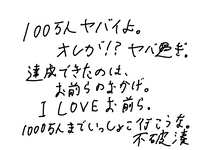 100万人ヤバイよ。
オレが!? ヤバ過ぎ。
達成できたのは、
お前らのおかげ。
I LOVE お前ら。
1000万人までいっしょに行こうな。
不破湊